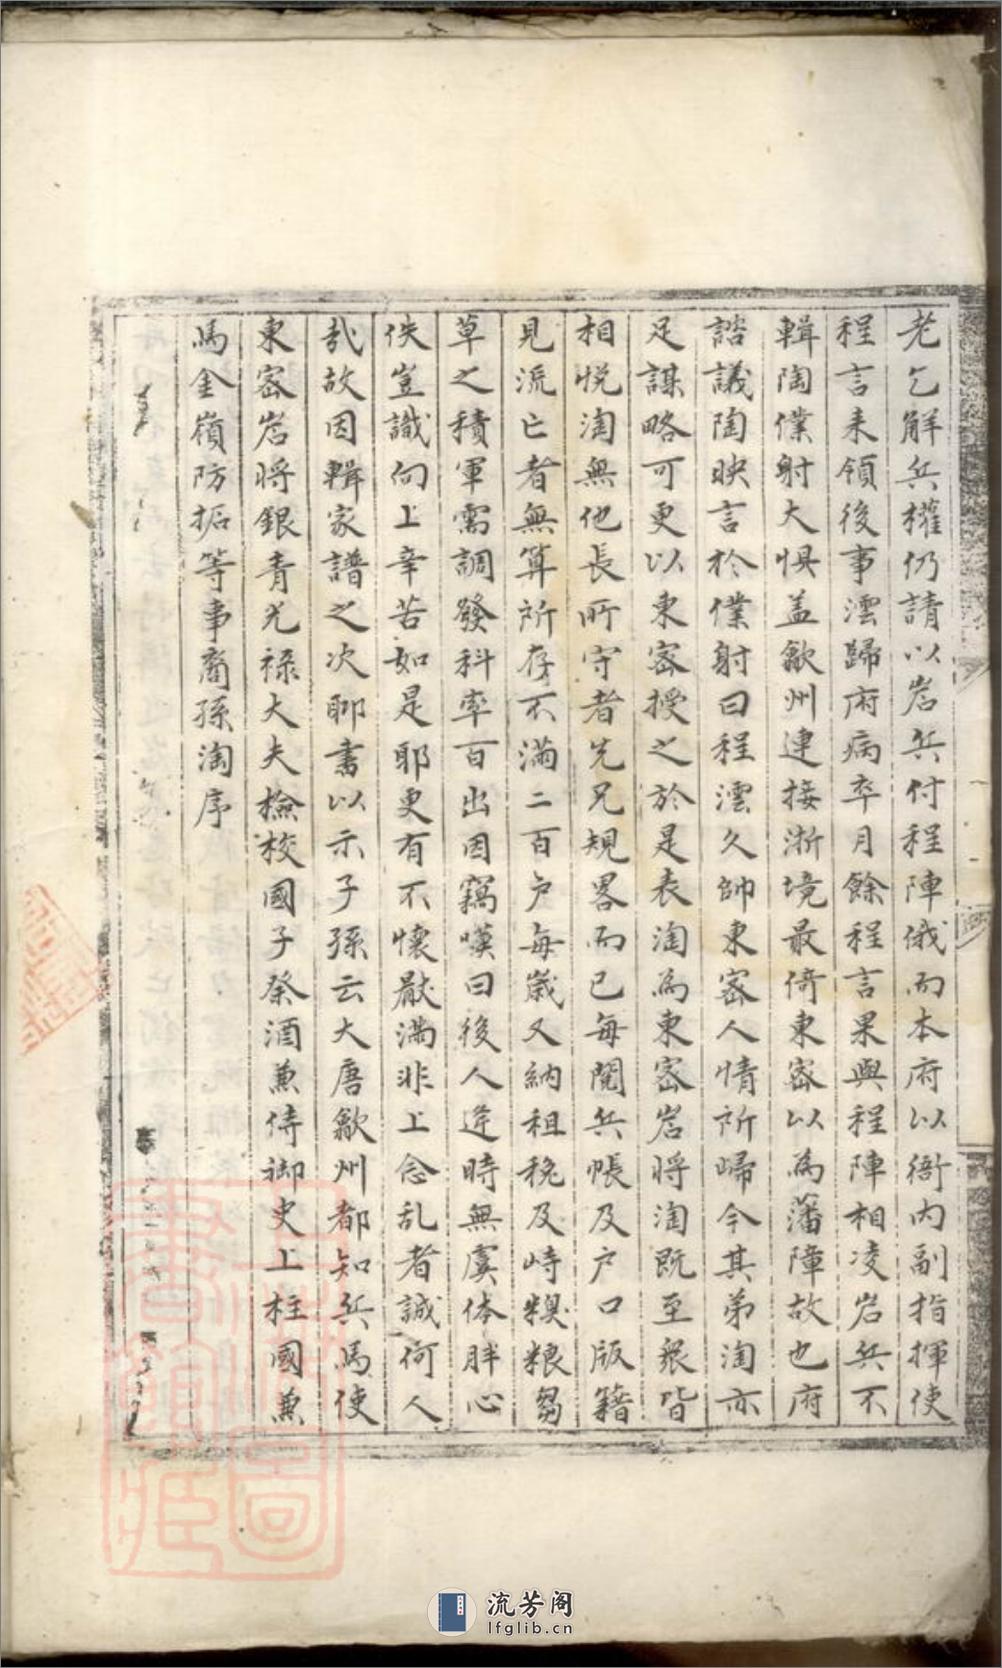 老乞解兵權仍請以岩兵付程陣俄而本府以衙内副指揮使
程言来領後事澐歸府病卒月餘程言果與程陣相凌岩兵不
輯陶僕射大惧盖歙州連接浙境最倚東宻以為藩障故也府
諮議陶映言於僕射曰程澐久帥東宻人情所歸今其弟淘亦
足謀略可更以東宻授之於是表淘為東宻岩将淘既至衆皆
相悦淘無他長所守者先兄規畧而已每閲兵帳及户口版籍
見流亡者無算所存不滿二百户每歲又納租税及峙糗粮芻
草之積軍需調發科率百出因竊嘆曰後人逢時無虞体胖心
佚豈識向上辛苦如是耶更有不懷厭滿非上念乱者誠何人
哉故因輯家譜之次聊書以示子孫云大唐歙州都知兵馬使
東宻岩将銀青光禄大夫檢校國子祭酒兼侍御史上柱國兼
馬金嶺防拓等事裔孫淘序
流芳阁
lfglib.cn